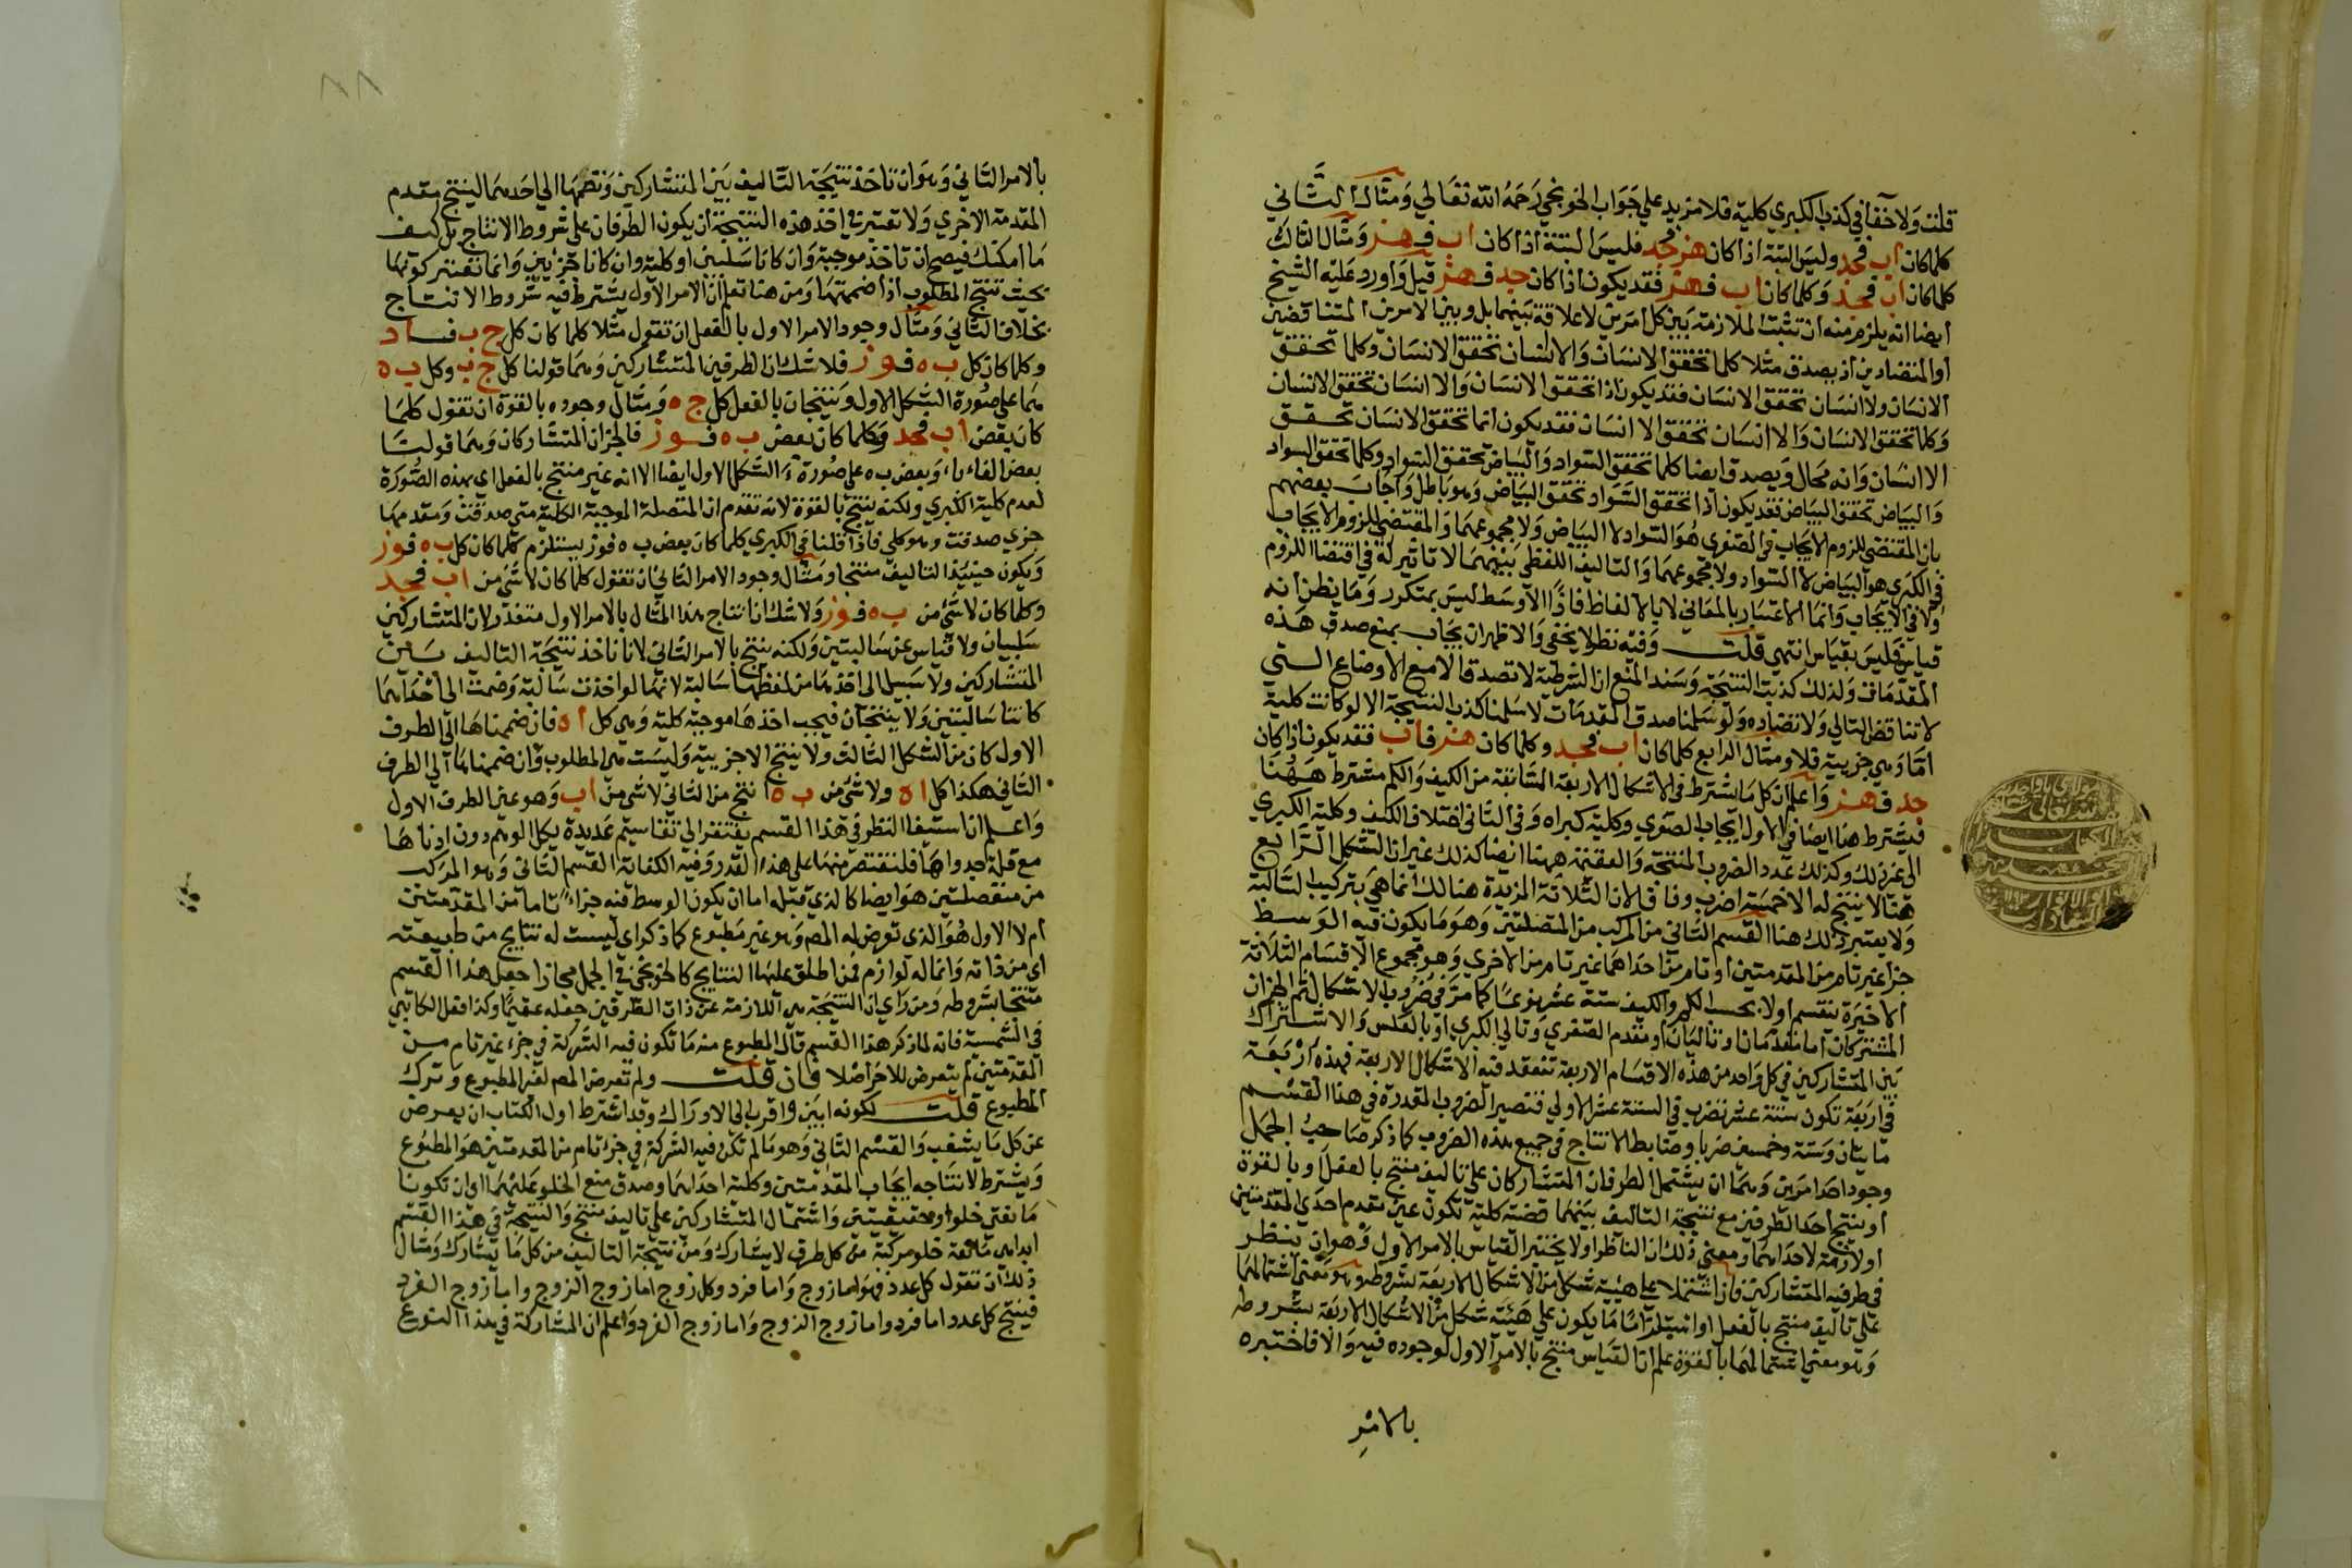 قلت ولا خفا في كذب الكبري كلية فلا مزيد علي جواب الخونجي رحمه الله تعالي ومثال الثاني
كلما كان اب فجد وليس البتة اذا كان هز فجد فليس البتة اذا كان اب فهز ومثال الثالث
كلما كان اب فجد وكلما كان اب فهز فقد يكون اذا كان جد فهز قيل واورد عليه الشيخ
ايضا انه يلزم منه ان تثبت الملازمة بين كل امرين لا علاقة بينهما بل وبين الامرين المتناقضين
او المتضادين اذ يصدق مثلا كلما تحقق الانسان والا انسان تحقق الانسان وكلما تحقق
الانسان ولا انسان تحقق الانسان فقد يكون اذا تحقق الانسان والا انسان تحقق الانسان
وكلما تحقق الانسان والا انسان تحقق الا انسان فقد يكون انما تحقق الانسان تحقق
الا انسان وانه محال ويصدق ايضا كلما تحقق السواد والبياض تحقق السواد وكلما تحقق السواد
والبياض تحقق البياض فقد يكون اذا تحقق السواد تحقق البياض وهو باطل واجاب بعضهم
بان المقتضي للزوم الايجاب في الصغري هو السواد لا البياض ولا مجموعهما والمقتضي للزوم الايجاب
في الكبري هو البياض لا السواد ولا مجموعهما والتاليف اللفظي بينهما لا تاثير له في اقتضا اللزوم
ولا في الايجاب وانما الاعتبار بالمعاني لا بالالفاظ فاذا الاوسط ليس بمتكرر وما يظن انه
قياس فليس بقياس انتهي قلت وفيه نظر لا يخفي والاظهر ان يجاب بمنع صدق هذه
المقدمات ولذلك كذبت النتيجة وسند المنع ان الشرطية لا تصدق الا مع الاوضاع التي
لا تناقض التالي ولا تضاده ولو سلمنا صدق المقدمات لا سلمنا كذب النتيجة الا لو كانت كلية
اما وهي جزيية فلا ومثال الرابع كلما كان اب فجد وكلما كان هز فاب فقد يكون اذا كان
جد فهز واعلم ان كل ما اشترط في الاشكال الاربعة السابقة من الكيف والكم مشترط ههنا
فيشترط هنا ايضا في الاول ايجاب الصغري وكلية كبراه وفي الثاني اختلاف الكيف وكلية الكبري
الي غير ذلك وكذلك عدد الضروب المنتجة والعقيمة ههنا ايضا كذلك غير ان الشكل الرابع
هنا لا ينتج له الا خمسة اضرب وفاقا لان الثلاثة المزيدة هنالك انما هي بتركيب السالبة
ولا يعتبر ذلك هنا القسم الثاني من المركب من المتصلتين وهو ما يكون فيه الوسط
جزا غير تام من المقدمتين او تام من احداهما غير تام من الاخري وهو مجموع الاقسام الثلاثة
الاخيرة تنقسم اولا بحسب الكم والكيف ستة عشر نوعا كما مر في ضروب الاشكال ثم الجزان
المشتركان اما مقدمان او تاليان او مقدم الصغري وتالي الكبري او بالعكس والاشتراك
بين المتشاركين في كل واحد من هذه الاقسام الاربعة تنعقد فيه الاشكال الاربعة فهذه اربعة
في اربعة تكون ستة عشر تضرب في الستة عشر الاولي فتصير الضروب المقدرة في هذا القسم
مايتان وستة وخمسين ضربا وضابط الانتاج في جميع هذه الضروب كما ذكر صاحب الجمل
وجود احد امرين وهما ان يشتمل الطرفان المتشاركان علي تاليف منتج بالفعل او بالقوة
او ينتج احد الطرفين مع نتيجة التاليف بينهما قضية كلية تكون عين مقدم احدي المقدمتين
او لازمة لاحداهما ومعني ذلك ان الناظر اولا يختبر القياس بالامر الاول وهو ان ينظر
في طرفيه المتشاركين فان اشتملا علي هيئة شكل من الاشكال الاربعة بشروطه وهو معني اشتمالهما
علي تاليف منتج بالفعل او استلزاما ما يكون علي هيئة شكل من الاشكال الاربعة بشروطه
وهو معني اشتمالهما بالقوة علم ان القياس منتج بالامر الاول لوجوده فيه والا فاختبره
بالامر
٨٨
بالامر الثاني وهو ان تاخذ نتيجة التاليف بين المتشاركين وتضمها الي احدهما لينتج مقدم
المقدمة الاخري ولا تعتبر في اخذ هذه النتيجة ان يكون الطرفان علي شروط الانتاج بل كيف
ما امكنك فيصح ان تاخذ موجبة وان كانا سالبتين او كلية وان كانا جزيين وانما تعتبر كونها
بحيث تنتج المطلوب اذا ضممتها ومن هنا تعلم ان الامر الاول يشترط فيه شروط الانتاج
بخلاف الثاني ومثال وجود الامر الاول بالفعل ان تقول مثلا كلما كان كل ج ب فاد
وكلما كان كل ب ه فوز فلا شك ان الطرفين المتشاركين وهما قولنا كل ج ب وكل ب ه
هما علي صورة الشكل الاول وينتجان بالفعل كل ج ه ومثال وجوده بالقوة ان تقول كلما
كان بعض اب فجد وكلما كان بعض ب ه فوز فالجزان المتشاركان وهما قولنا
بعض الفاء باء وبعض ب ه علي صورة الشكل الاول ايضا الا انه غير منتج بالفعل اي بهذه الصورة
لعدم كلية الكبري ولكنه ينتج بالقوة لانه تقدم ان المتصلة الموجبة الكلية متي صدقت ومقدمها
جزي صدقت وهو كلي فاذا قلنا في الكبري كلما كان بعض ب ه فوز يستلزم كلما كان كل ب ه فوز
ويكون حينيذ التاليف منتجا ومثال وجود الامر الثاني ان تقول كلما كان لا شي من اب فجد
وكلما كان لا شي من ب ه فوز ولا شك ان انتاج هذا المثال بالامر الاول متعذر لان المتشاركين
سلبيان ولا قياس عن سالبتين ولكنه ينتج بالامر الثاني لانا ناخذ نتيجة التاليف بين
المتشاركين ولا سبيل الي اخذها من لفظها سالبة لانها لو اخذت سالبة وضمت الي احداهما
كانتا سالبتين ولا ينتجان فيجب اخذها موجبة كلية وهي كل ا ه فان ضممناها الي الطرف
الاول كان من الشكل الثالث ولا ينتج الا جزيية وليست هي المطلوب وان ضممناها الي الطرف
الثاني هكذا كل ا ه ولا شي من ب ه انتج من الثاني لا شي من اب وهو عين الطرف الاول
واعلم ان استيفا النظر في هذا القسم يفتقر الي تقاسيم عديدة يكل الوهم دون ادناها
مع قلة جدواها فلنقتصر منها علي هذا القدر وفيه الكفاية القسم الثاني وهو المركب
من منفصلتين هو ايضا كالذي قبله اما ان يكون الوسط فيه جزاء تاما من المقدمتين
ام لا الاول هو الذي تعرض له المص وهو غير مطبوع كما ذكر اي ليست له نتايج من طبيعته
اي من ذاته وانما له لوازم فمن اطلق عليها النتايج كالخونجي في الجمل مجازا جعل هذا القسم
منتجا بشروطه ومن راي ان النتيجة هي اللازمة عن ذات الطرفين جعله عقيما وكذا فعل الكاتبي
في الشمسية فانه لما ذكر هذا القسم قال المطبوع منه ما تكون فيه الشركة في جزء غير تام من
المقدمتين لم يتعرض للاخر اصلا فان قلت ولم تعرض المص لغير المطبوع وترك
المطبوع قلت لكونه ابين واقرب الي الاوراك وقد اشترط اول الكتاب ان يعرض
عن كل ما يشغب والقسم الثاني وهو ما لم تكن فيه الشركة في جزء تام من المقدمتين هو المطبوع
ويشترط لانتاجه ايجاب المقدمتين وكلية احداهما وصدق منع الخلو عليهما اي وان تكونا
مانعتي خلو او حقيقيتين واشتمال المتشاركين علي تاليف منتج والنتيجة في هذا القسم
ابدا هي مانعة خلو مركبة من كل طرف لا يشارك ومن نتيجة التاليف من كل ما يشارك ومثال
ذلك ان تقول كل عدد فهو اما زوج واما فرد وكل زوج اما زوج الزوج واما زوج الفرد
فينتج كل عدد اما فرد واما زوج الزوج واما زوج الفرد واعلم ان المشاركة في هذا النوع